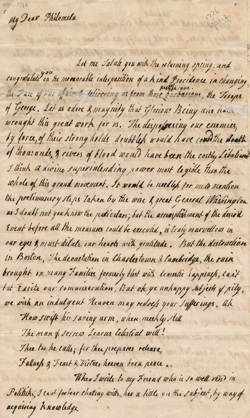 My Dear Philomela
Let me Salute you with the returning spring, and
congratulate you on the memorable interposition of a kind Providence in changing
the of our in delivering us from those the Troops
of George. Let us adore & magnify that Glorious Being who has
wrought this great work for us. The dispossessing our enemies
by force, of their strong holds doubtless would have cost the death
of thousands, & rivers of blood wou'd have been the costly
I think a divine superintending power most legible thro the
whole of this grand movement. It would be needless for me to mention
the preliminary steps taken by the wise & great General Washington
as I doubt not you know the particulars; but the accomplishment of the desired
Event before all the measures could be executed, is truly marvellous in
our eyes & must dilate our hearts with gratitude. But the destruction
in Boston, The desolation in Charlestown & Cambridge, the ruin
brought on many Families formerly blest with domestic happiness, can't
but Excite our commiseration. But oh ye unhappy objects of pity,
we with an indulgent Heaven may redress your Sufferings. Ah
How swift his saving arm, when meekly still
The man of sorrow Learns Celestial will!
Then too he calls, for thee prepares release,
Fallen of & Victor heaven been peace.
When I write to my Friend who is so well versed in
Politicks, I can't forbear chatting with her a little on the subject, by way of
acquiring knowledge